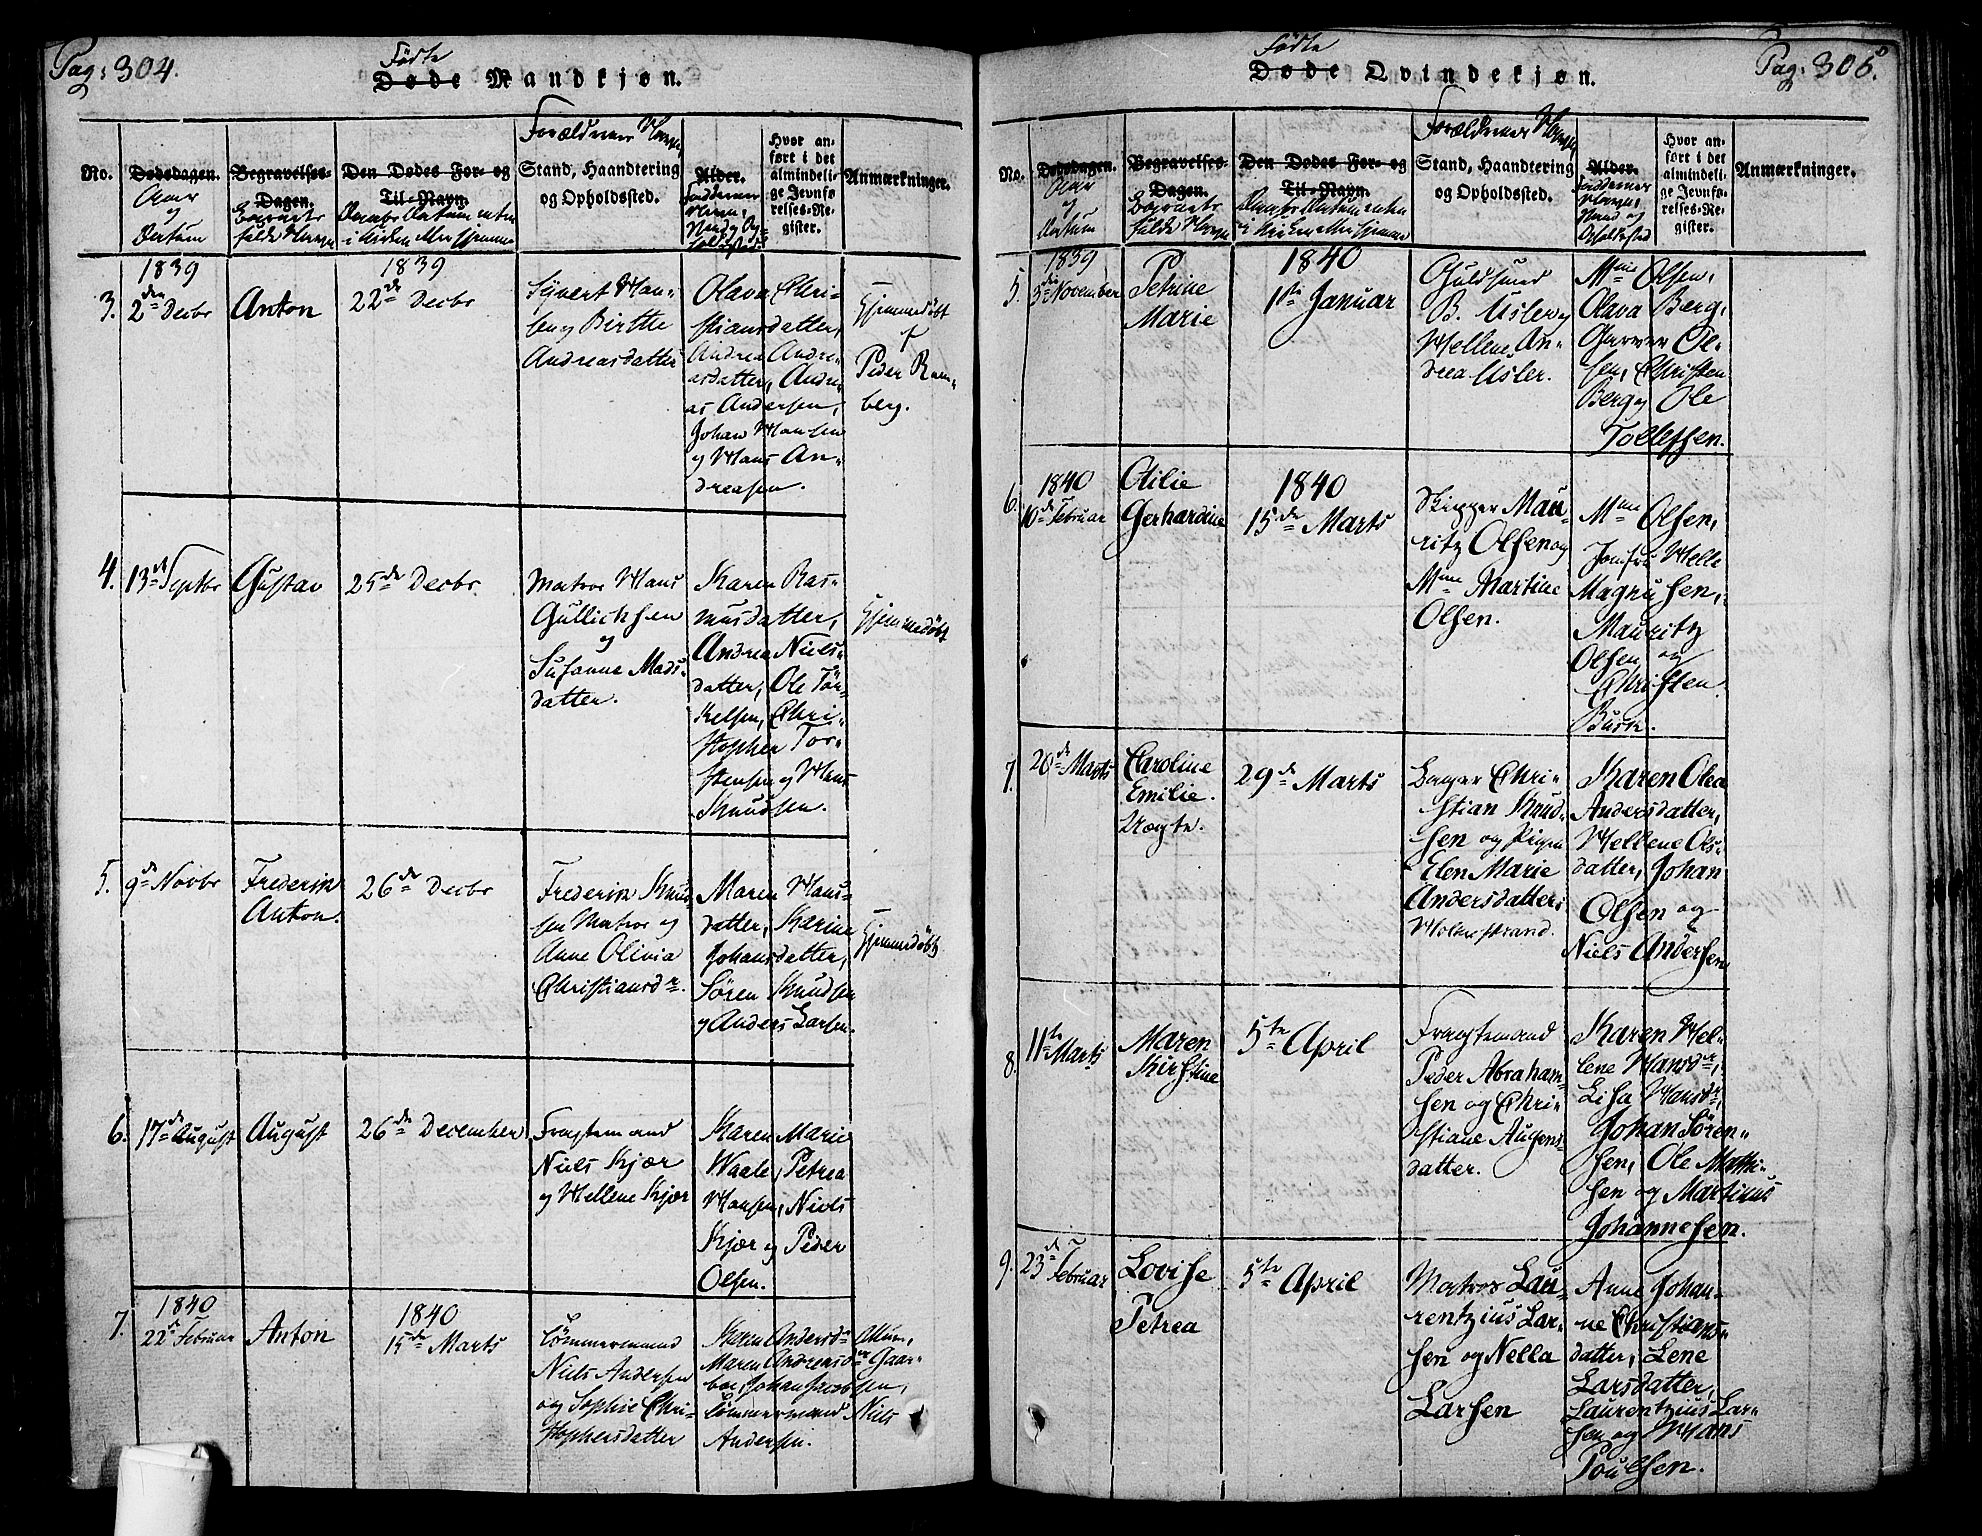 Pag: 304.
Födte
Døde Mandkjøn.
No.
Dødsdagen.
Aar
og
Datum
Begravelses-
Dagen.
Barnets
fulde Navn
Den Dødes For- og
Til-Navn.
Forældrenes Navn,
Stand, Haandtering
og Opholdssted.
Alder.
Faddernes
Navn,
Hvor an-
ført i det
almindeli-
ge Jevnfø-
relses-Re-
gister.
Anmærkninger.
3.
1839
2den Decbr
Anton
1839
22de Decbr
Sivert Han-
sen og Birthe
Andreasdatter
Olava Chri-
stiansdatter,
Andrea Andre-
asdatter, Andre-
as Andersen,
Johan Hansen
og Hans An-
dreasen.
Hjemmedöbt
af
Peder Ram-
berg.
4.
13de Septbr
Gustav
25de Decbr.
Matros Hans
Gullichsen
og
Susanne Mads-
datter.
Karen Ras-
musdatter,
Andrea Niels-
datter, Ole Tör-
kelsen, Chri-
stopher Tor-
stensen og Hans
Knudsen.
Hjemmedöbt
5.
9de Novbr
Frederik
Anton.
26de Decbr
Frederik Knud-
sen Matros og
Anne Olivia
Christiansdr.
Maren Hans-
datter, Karine
Johansdatter,
Sören Knudsen
og Anders Larsen.
Hjemmedöbt
6.
17de August
August
26de December
Fragtemand
Niels Kjær
og Hellene Kjær
Karen Marie
Waale, Petrea
Hansen, Niels
Kjær og Peder
Olsen.
7.
1840
22de Februar
Anton
1840
15de Marts
Tömmermand
Niels Andersen
og Sophie Chri-
stophersdatter
Karen Andersdr
Maren Andreasdr Gaar-
boe, Johan Jacobsen,
Tömmermand Niels
Andersen.
Pag: 305.
Födte
Døde Qvindekjøn.
No.
Dødsdagen.
Aar
og
Datum
Begravelses-
Dagen.
Barnets
fulde Navn
Den Dødes For- og
Til-Navn.
Forældrenes Navn,
Stand, Haandtering
og Opholdssted.
Alder.
Faddernes
Navn,
Stand og
Opholdssted
Hvor an-
ført i det
almindeli-
ge Jevnfø-
relses-Re-
gister.
Anmærkninger.
5.
1839
5te November
Petrine
Marie
1840
1ste Januar
Guldsmed
B. Usler og
Hellene An-
drea Usler.
Mme Olsen,
Olava Berg,
Garver Ol-
sen, Christen
Berg og Ole
Tollefsen.
6.
1840
10de Februar
Otilie
Gerhardine
1840
15de Marts
Skipper Mau-
ritz Olsen og
Mme Martine
Olsen.
Mme Olsen,
Jomfru Helle
Magnusen,
Mauritz
Olsen og
Christen
Busk.
7.
20de Marts
Caroline
Emilie.
Uægte.
29de Marts
Bager Chri-
stian Knud-
sen og Pigen
Elen Marie
Andersdatter i
Holmestrand.
Karen Olea
Andersdatter,
Hellene Ols-
datter, Johan
Olsen og
Niels Andersen
8.
11te Marts
Maren
Kirstine
5te April
Fragtemand
Peder Abraham-
sen og Chri-
stiane Augens-
datter.
Karen Hel-
lene Hansdr,
Lisa Hansdr,
Johan Sören-
sen, Ole Mathi-
sen og Martinus
Johannesen.
9.
23de Februar
Lovise
Petrea
5te April
Matros Lau-
rentzius Lar-
sen og Nella
Larsen
Anne Johan-
ne Christians-
datter, Lene
Larsdatter,
Laurentzius Lar-
sen og Hans
Poulsen.